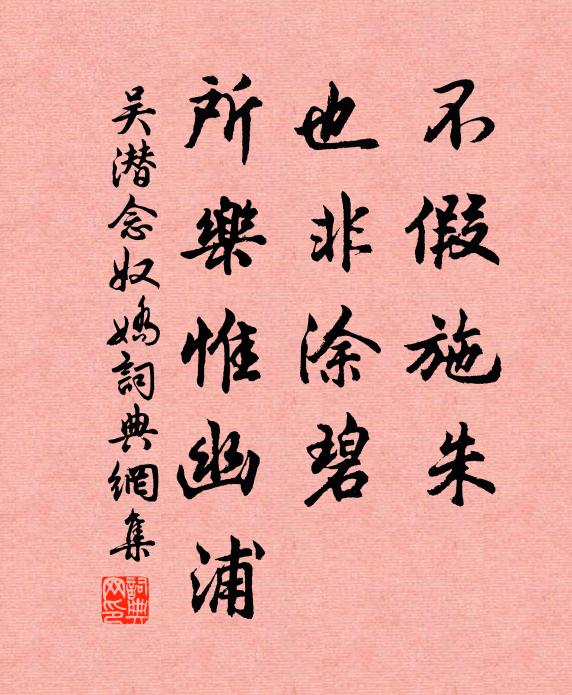 不假施朱
也非涂碧
所樂惟幽浦
吴潜念奴嬌詞典網集
詞典網印